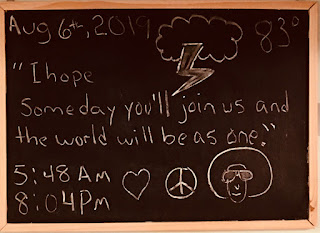 Aug 6th, 2019 83°
"I hope
Someday you'll join us and
the world will be as one."
5:48 Am
8:04 Pm